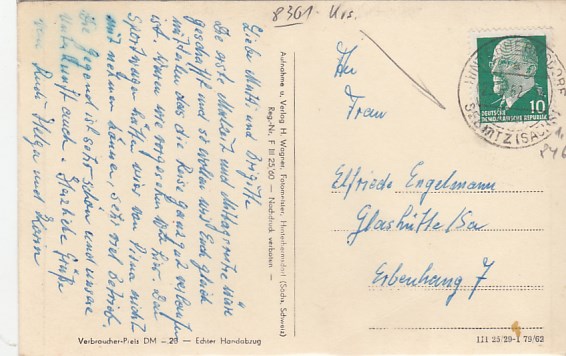 8361. Urs.
Liebe Mutti und Brigitte
Die erste Mahlzeit und Mittagsruhe wäre
geschafft und so wollen wir Euch gleich
mitteilen das die Reise ganz gut verlaufen
ist. Waren wie vorgesehen Uhr hier. Den
Sportwagen hätten wir von Pirna nicht
mit nehmen können, sehr viel Betrieb.
Die Gegend ist sehr schön und unsere
Unterkunft auch. Herzliche Grüße
von Rudi Helga und Karin
Aufnahme u. Verlag H. Wagner, Fotomeister, Hinterhermsdorf (Sächs. Schweiz)
Reg.-Nr. F III 25/60 — Nachdruck verboten —
Verbraucher-Preis DM -.20 — Echter Handabzug
An
Frau
Elfriede Engelmann
Glashütte/Sa
Erbenhang 7
10
DEUTSCHE
DEMOKRATISCHE REPUBLIK
SEBNITZ (SACHS)
III 25/29-1 79/62